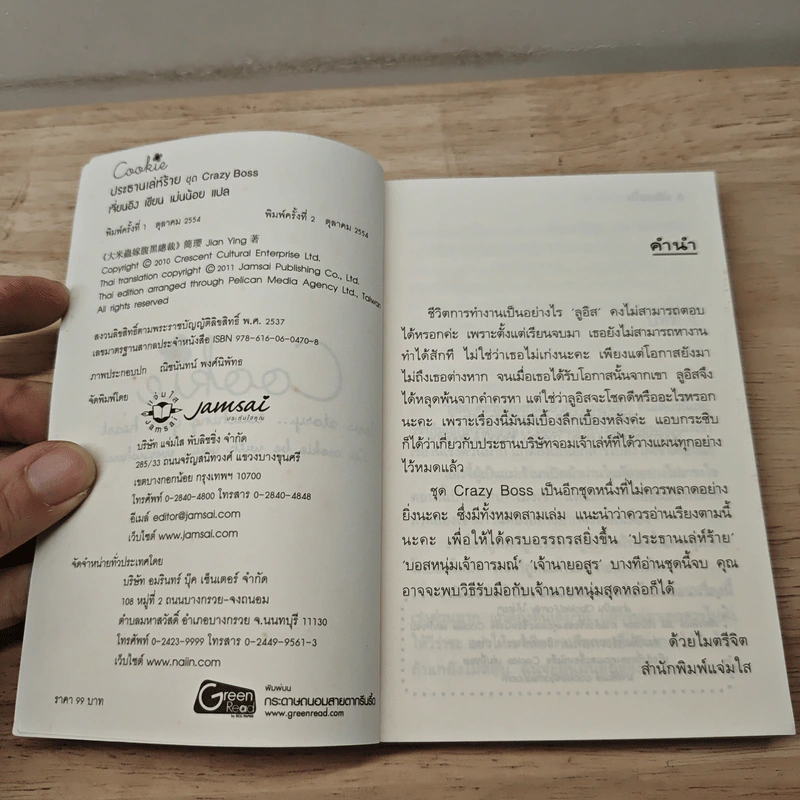 Cookie
ประธานเล่ห์ร้าย ชุด Crazy Boss
เจี่ยนอิง เขียน เม่นน้อย แปล
พิมพ์ครั้งที่ 1 ตุลาคม 2554 พิมพ์ครั้งที่ 2 ตุลาคม 2554
《大米蟲嫁腹黑總裁》簡瓔 Jian Ying 著
Copyright © 2010 Crescent Cultural Enterprise Ltd.
Thai translation copyright © 2011 Jamsai Publishing Co., Ltd.
Thai edition arranged through Pelican Media Agency Ltd., Taiwan
All rights reserved
สงวนลิขสิทธิ์ตามพระราชบัญญัติลิขสิทธิ์ พ.ศ. 2537
เลขมาตรฐานสากลประจำหนังสือ ISBN 978-616-06-0470-8
ภาพประกอบปก ณิชนันทน์ พงศ์นิพัทธ
จัดพิมพ์โดย
แจ่มใส
JAMSAI
Jamsai
บริษัท แจ่มใส พับลิชชิ่ง จำกัด
285/33 ถนนจรัญสนิทวงศ์ แขวงบางขุนศรี
เขตบางกอกน้อย กรุงเทพฯ 10700
โทรศัพท์ 0-2840-4800 โทรสาร 0-2840-4848
อีเมล์ editor@jamsai.com
เว็บไซต์ www.jamsai.com
จัดจำหน่ายทั่วประเทศโดย
บริษัท อมรินทร์ บุ๊ค เซ็นเตอร์ จำกัด
108 หมู่ที่ 2 ถนนบางกรวย-จงถนอม
ตำบลมหาสวัสดิ์ อำเภอบางกรวย จ.นนทบุรี 11130
โทรศัพท์ 0-2423-9999 โทรสาร 0-2449-9561-3
เว็บไซต์ www.naiin.com
ราคา 99 บาท
Green Read
พิมพ์บน
กระดาษถนอมสายตากรีนรี้ด
www.greenread.com
คำนำ
ชีวิตการทำงานเป็นอย่างไร 'ลูอิส' คงไม่สามารถตอบ
ได้หรอกค่ะ เพราะตั้งแต่เรียนจบมา เธอยังไม่สามารถหางาน
ทำได้สักที ไม่ใช่ว่าเธอไม่เก่งนะคะ เพียงแต่โอกาสยังมา
ไม่ถึงเธอต่างหาก จนเมื่อเธอได้รับโอกาสนั้นจากเขา ลูอิสจึง
ได้หลุดพ้นจากคำครหา แต่ใช่ว่าลูอิสจะโชคดีหรืออะไรหรอก
นะคะ เพราะเรื่องนี้มันมีเบื้องลึกเบื้องหลังค่ะ แอบกระซิบ
ก็ได้ว่าเกี่ยวกับประธานบริษัทจอมเจ้าเล่ห์ที่ได้วางแผนทุกอย่าง
ไว้หมดแล้ว
ชุด Crazy Boss เป็นอีกชุดหนึ่งที่ไม่ควรพลาดอย่าง
ยิ่งนะคะ ซึ่งมีทั้งหมดสามเล่ม แนะนำว่าควรอ่านเรียงตามนี้
นะคะ เพื่อให้ได้ครบอรรถรสยิ่งขึ้น 'ประธานเล่ห์ร้าย'
'บอสหนุ่มเจ้าอารมณ์' 'เจ้านายอสูร' บางทีอ่านชุดนี้จบ คุณ
อาจจะพบวิธีรับมือกับเจ้านายหนุ่มสุดหล่อก็ได้
ด้วยไมตรีจิต
สำนักพิมพ์แจ่มใส